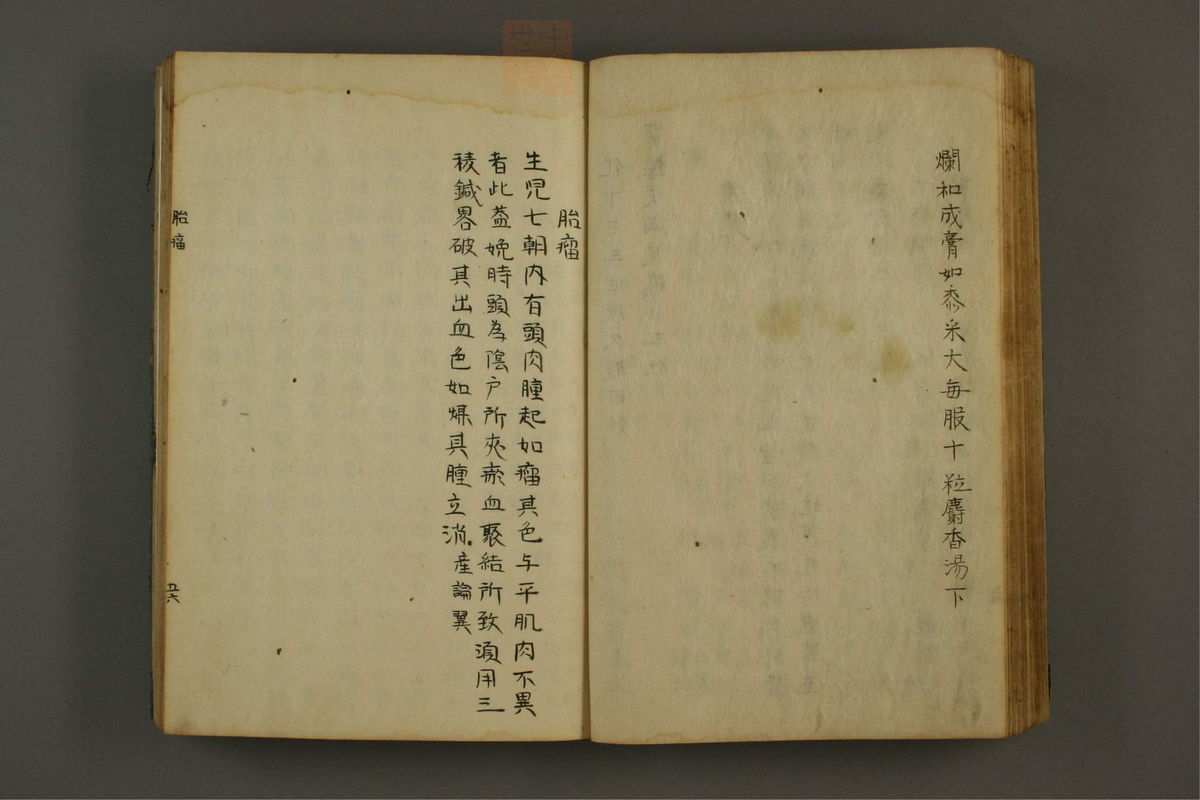 爛和成膏如黍米大每服十粒麝香湯下
胎瘤
生児七朝内有頭肉腫起如瘤其色与平肌肉不異
者此蓋娩時頭為陰户所夾瘀血聚結所致須用三
稜鍼畧破其出血色如煤其腫立消産論翼
胎瘤
五六